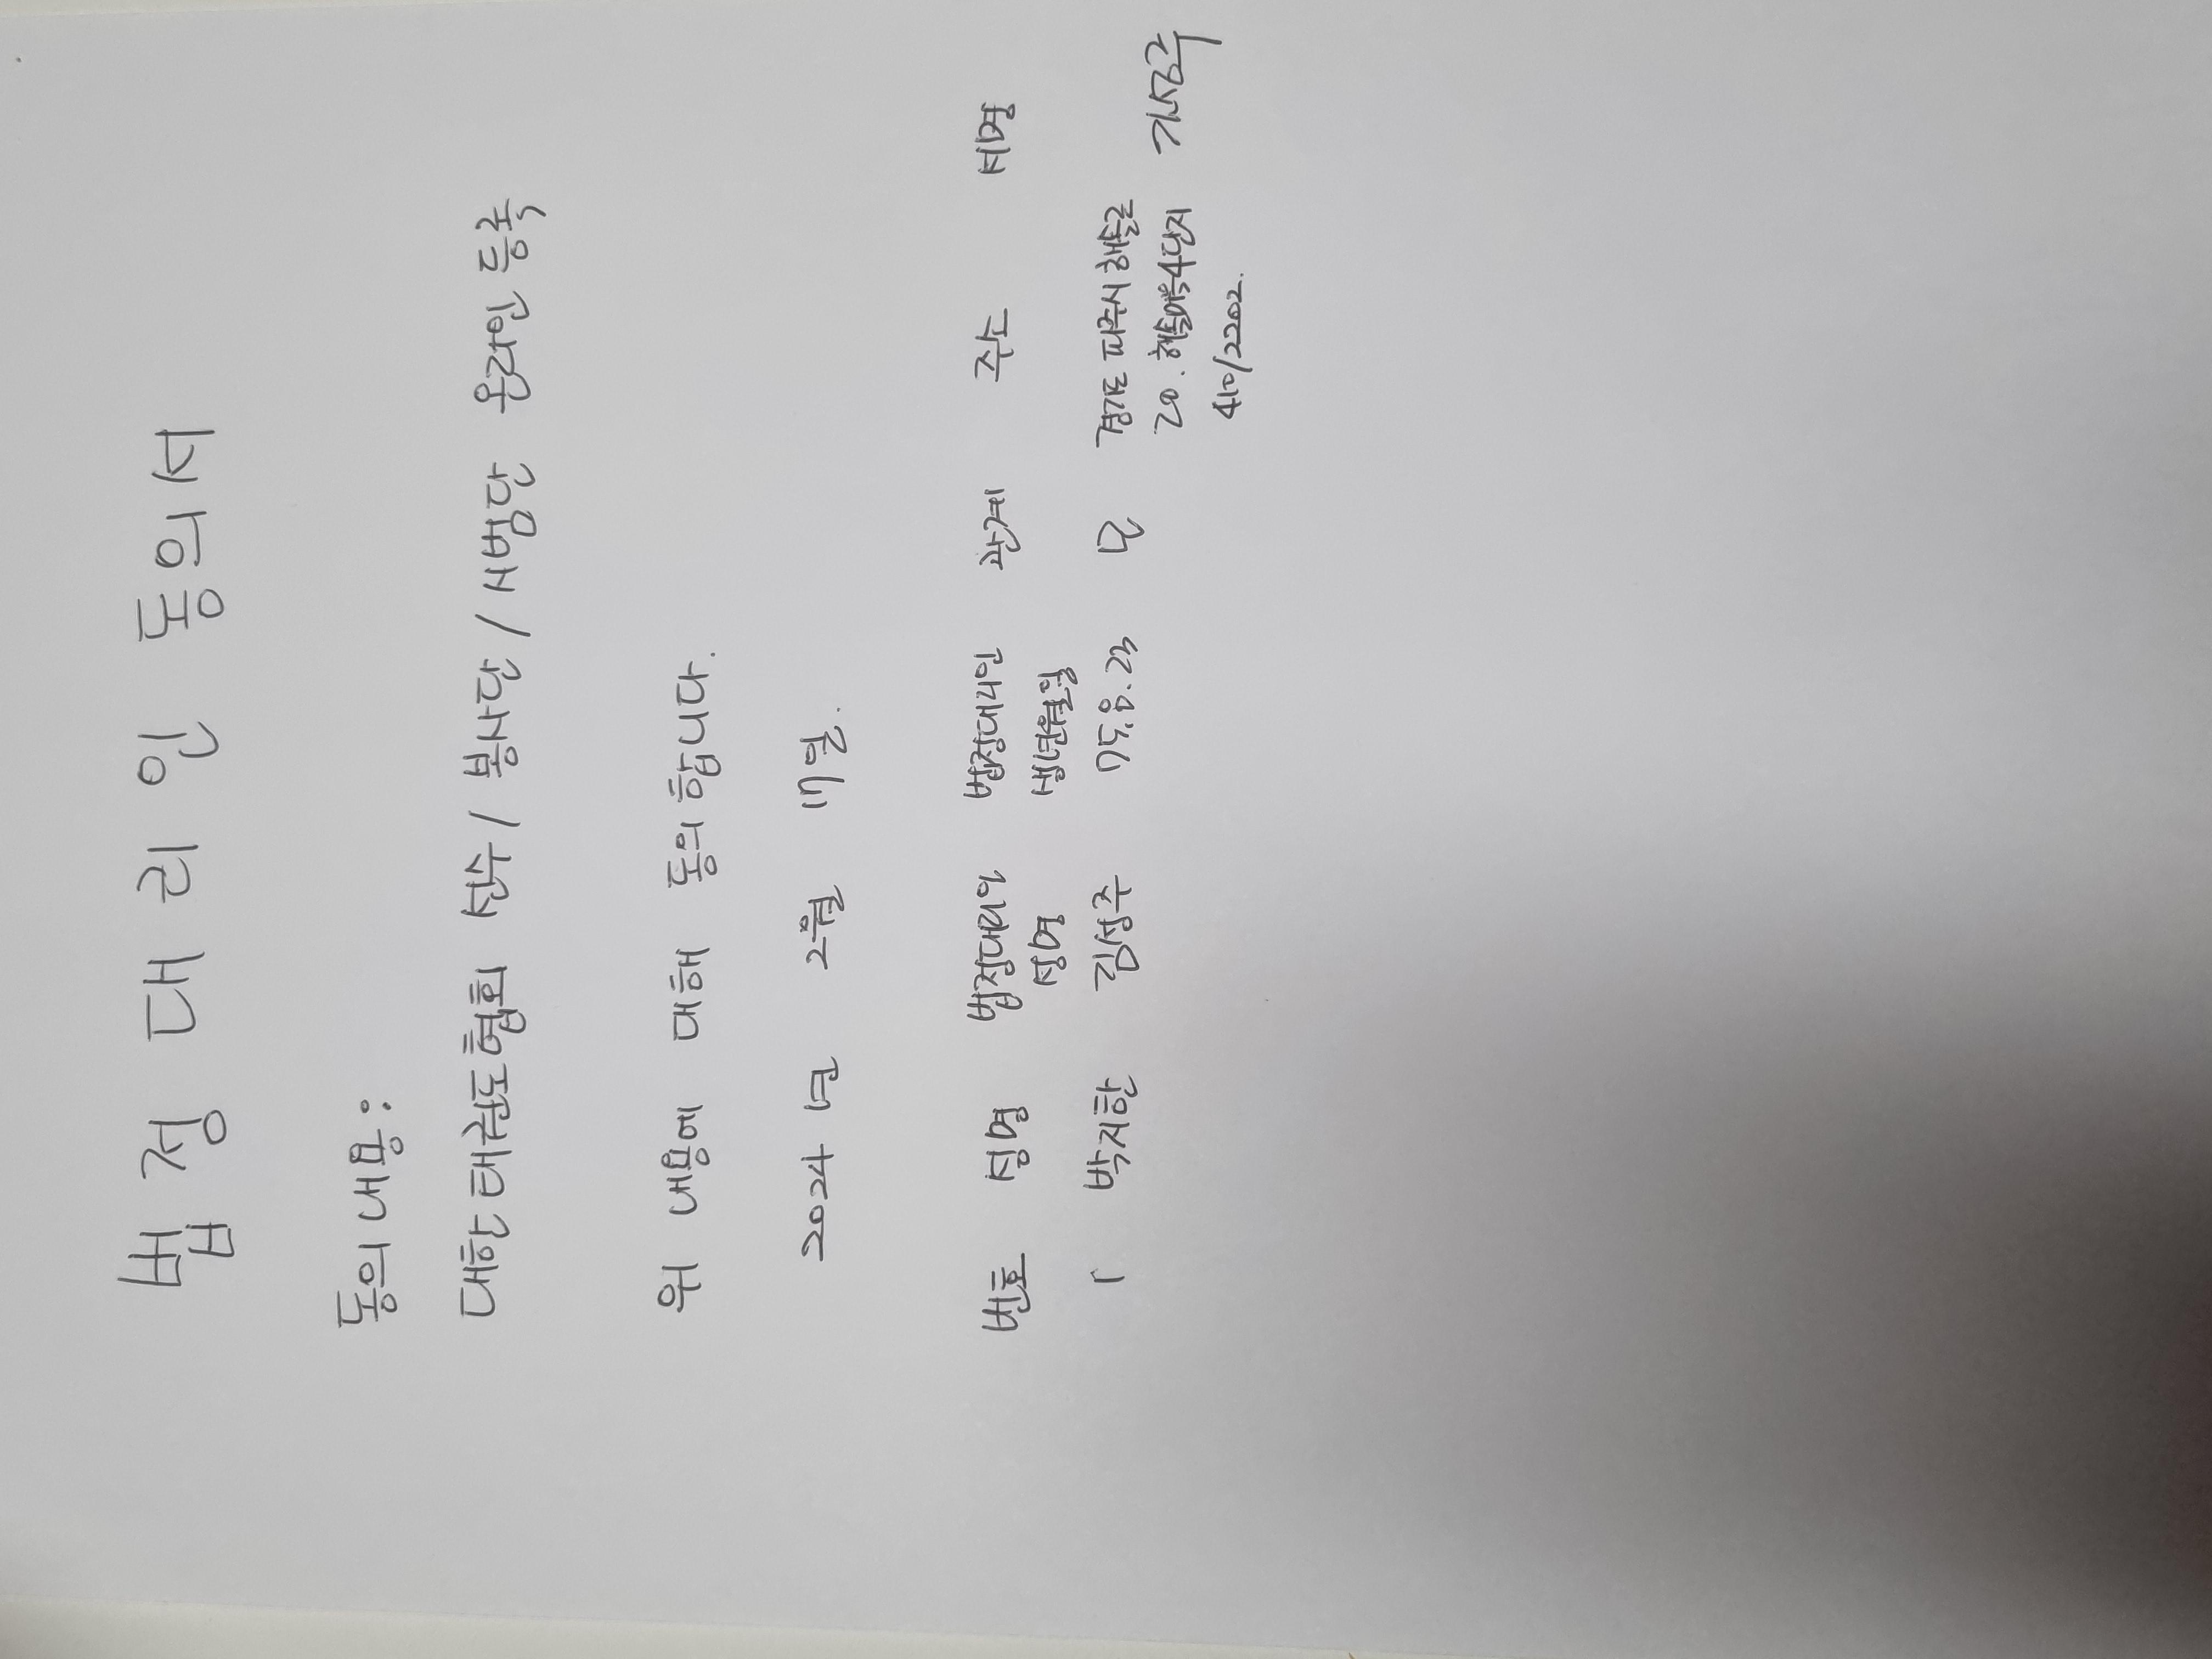 법정대리인 동의서
동의내용:
대한태권도협회 선수/봉사단/시범단 온라인 등록
위 내용에 대해 동의합니다.
2024년 2월 17일.
번호 성명 법정대리인 법정대리인 관계 주소 서명
성명 생년월일
1 박지한 김성주 75.8.23 모 경기도 파주시 해솔로
20. 해솔마을4단지
410/2202.